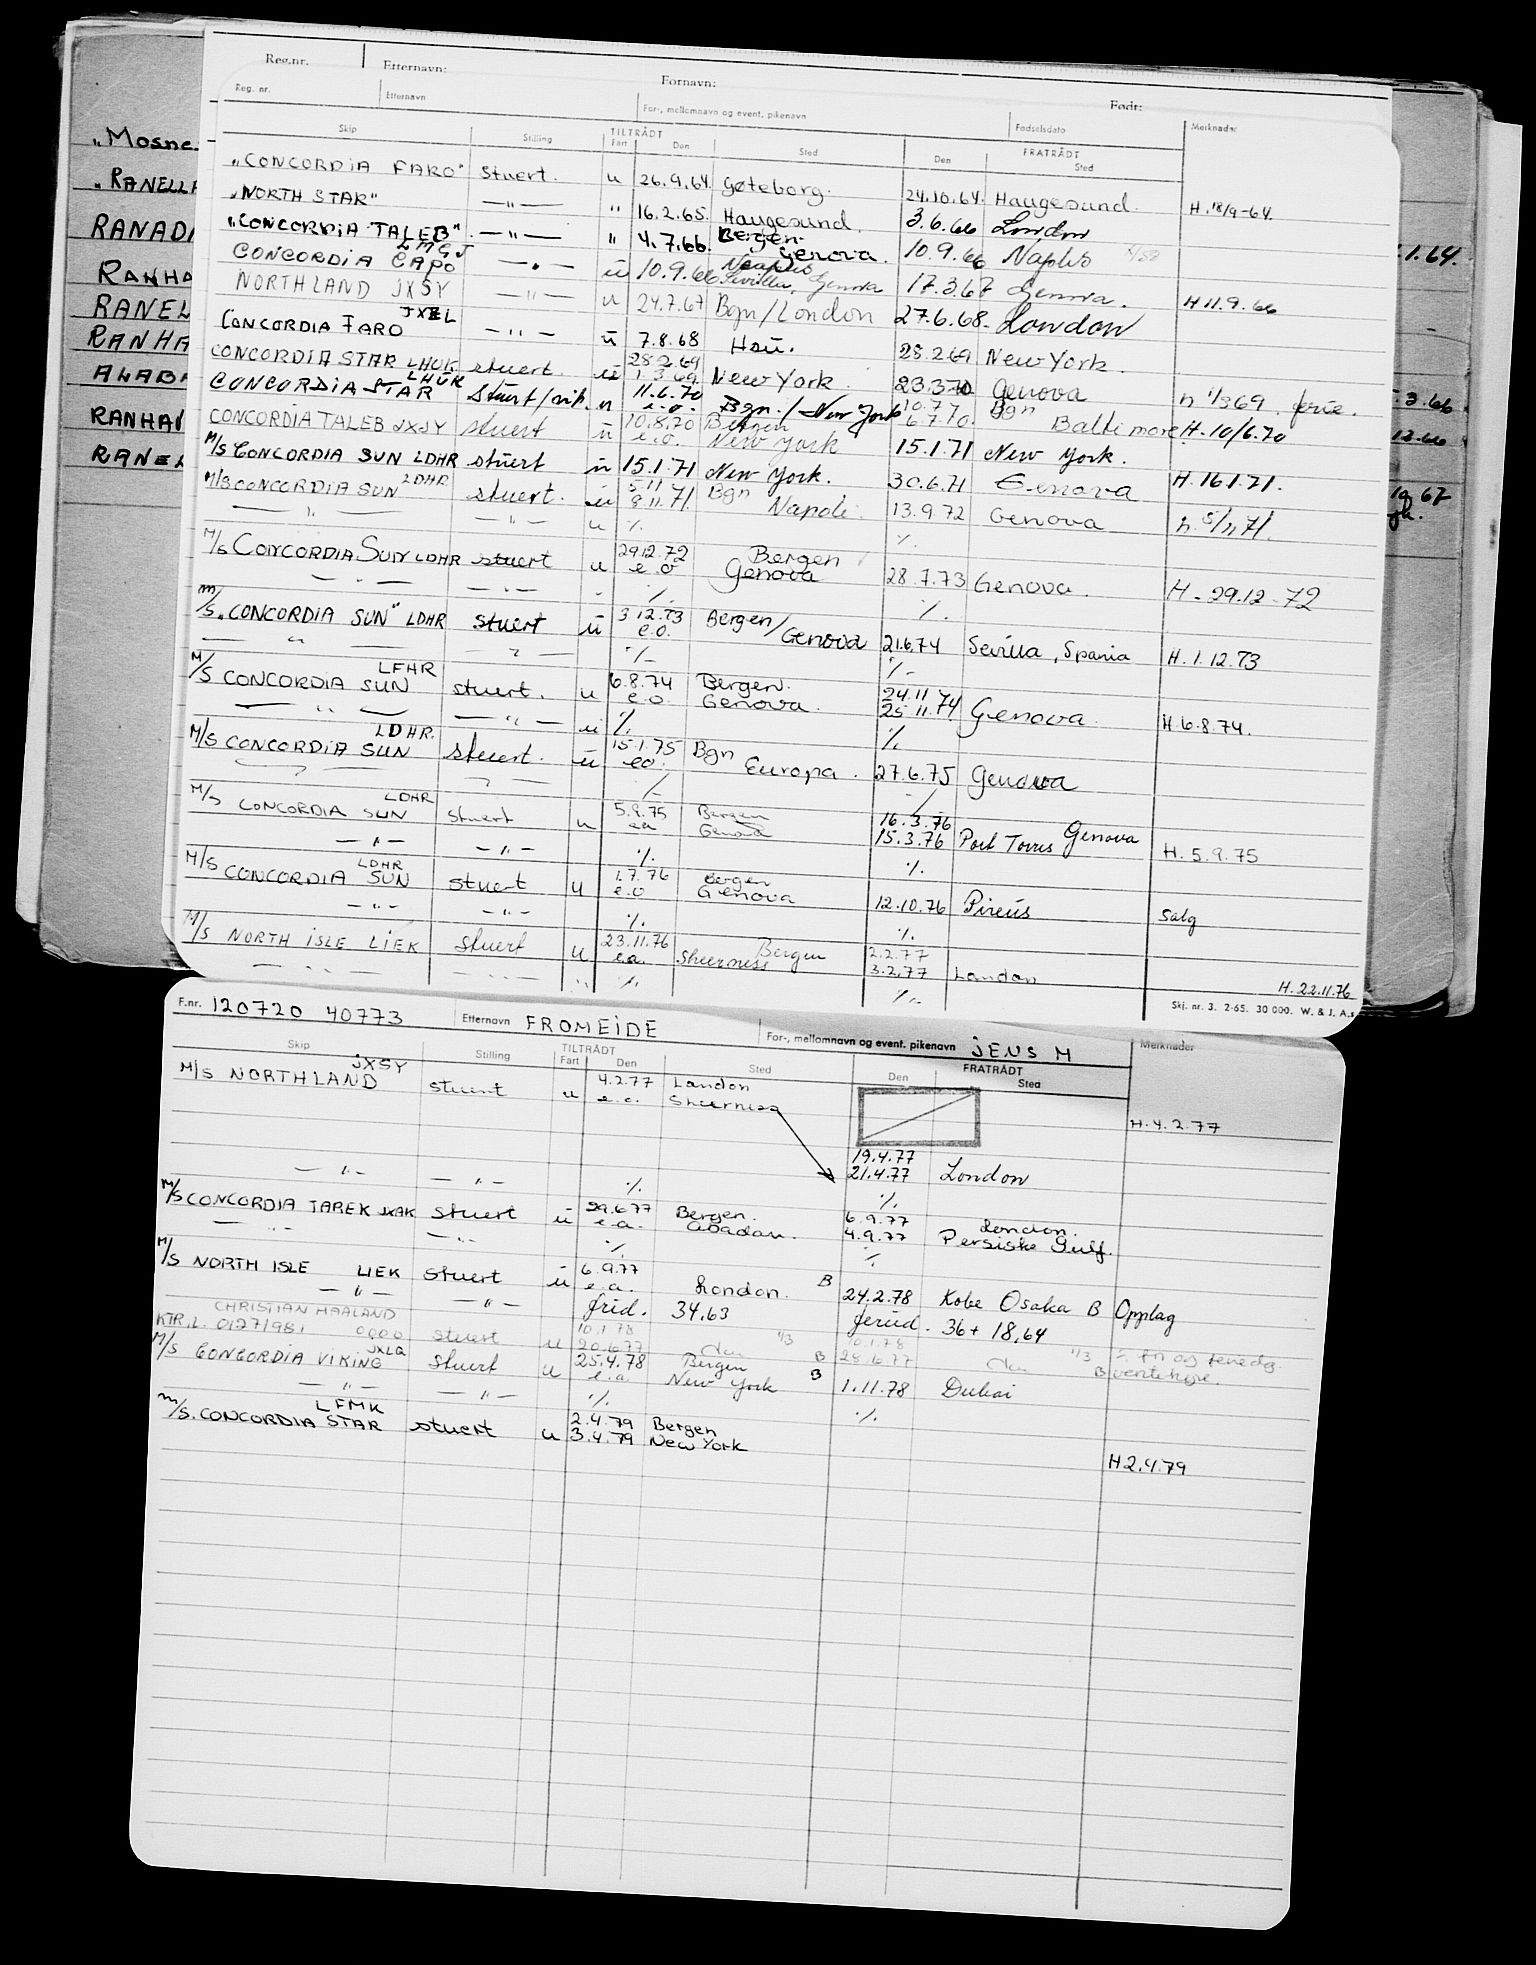 Reg.nr. Etternavn: Fornavn: Født:
Reg. nr. Etternavn For-, mellomnavn og event. pikenavn Fødselsdato Merknader
Skip Stilling TILTRÅDT Fart Den Sted FRATRÅDT Den Sted
"CONCORDIA FARO" stuert. u 26.9.64. Gøteborg. 24.10.64. Haugesund. H.18/9-64.
"NORTH STAR" —"— " 16.2.65. Haugesund. 3.6.66 London
"CONCORDIA TALEB" —"— " 4.7.66. Bergen. Genova. 10.9.66 Naples
LMGJ
CONCORDIA CAPO —"— ü 10.9.66 Neaples Sevilla, Genova 17.3.67 Genova. H 11.9.66
NORTHLAND JXSY —"— u 24.7.67 Bgn/London 27.6.68. London
JXEL
CONCORDIA FARO —"— ü 7.8.68 Hau. 28.2.69 New York.
CONCORDIA STAR LHUK stuert. ü 28.2.69 1.3.69 New York. 23.3.70 Genova h 1/3 69. ferie.
LHUK
CONCORDIA STAR stuert/vik. u 11.6.70 e.o. Bgn./New York 10.7.70 6.7.70. Bgn Baltimore H. 10/6.70
CONCORDIA TALEB JXJY stuert ü 10.8.70 e.o. Bergen New York 15.1.71 New York.
M/S CONCORDIA SUN LDHR stuert ü 15.1.71 New York. 30.6.71 Genova H. 16.1.71.
M/S CONCORDIA SUN LDHR stuert. ü 5.11 9.11.71. Bgn Napoli. 13.9.72 Genova h. 5/11 71.
—"— —"— u % %
M/S CONCORDIA SUN LDHR stuert u 29.12.72 e.o Bergen Genova 28.7.73 Genova. H. 29.12-72
—"— —"— - % %
M/S. "CONCORDIA SUN" LDHR stuert ü 3.12.73 e.o. Bergen/Genova 21.6.74 Sevilla, Spania H. 1.12.73
—"— —"— % %
LFHR
M/S CONCORDIA SUN stuert. u 6.8.74 e.o Bergen. Genova. 24.11.74 25.11.74 Genova. H 6.8.74.
—"— —"— ü % %
LDHR.
M/S CONCORDIA SUN stuert. ü 15.1.75 eo. Bgn Europa. 27.6.75 Genova
—"— —"— % %
LDHR
M/S CONCORDIA SUN stuert u 5.9.75 ea Bergen Genova 16.3.76 15.3.76 Port Torres Genova H. 5.9.75
—"— —"— % %
LDHR
M/S CONCORDIA SUN stuert u 1.7.76 e.o Bergen Genova 12.10.76 Pireus Salg
—"— —"— % %
M/S NORTH ISLE LIEK stuert u 23.11.76 e.a. Bergen Sheerness 2.2.77 3.2.77 London H. 22.11.76
—"— —"— " % %
Skj. nr. 3. 2-65. 30 000. W. & J. A.s
"Mosne
"RANELLA
RANADA
RANHA
RANEL
RANHA
ALABA
RANHAV
RANEL
1.64.
3.66
12.66
67
F.nr. 120720 40773 Etternavn FROMEIDE For-, mellomnavn og event. pikenavn JENS M Merknader
Skip Stilling TILTRÅDT Fart Den Sted FRATRÅDT Den Sted
JXSY
M/S NORTHLAND stuert u 4.2.77 e.o. London Sheerness H. 4.2.77
19.4.77
21.4.77 London
—"— —"— % %
M/S CONCORDIA TAREK JXAK stuert ü 29.6.77 e.a. Bergen. Abadan. 6.9.77 4.9.77 London. Persiske Gulf.
—"— —"— % %
M/S NORTH ISLE LIEK stuert ü 6.9.77 e.a. London. B 24.2.78 Kobe Osaka B Opplag
—"— —"— frid. 34,63 ferud. 36+18,64
CHRISTIAN HAALAND 10.1.78 10.1.78
KTR.L. 01271981 0900 stuert u 20.6.77 1/3 28.6.77 1/3
JXLQ
M/S CONCORDIA VIKING stuert u 25.4.78 e.a. Bergen New York B B 1.11.78 Dubai B ventehyre.
—"— —"— % %
LFMK
M/S. CONCORDIA STAR stuert u 2.4.79 3.4.79 Bergen New York H 2.4.79